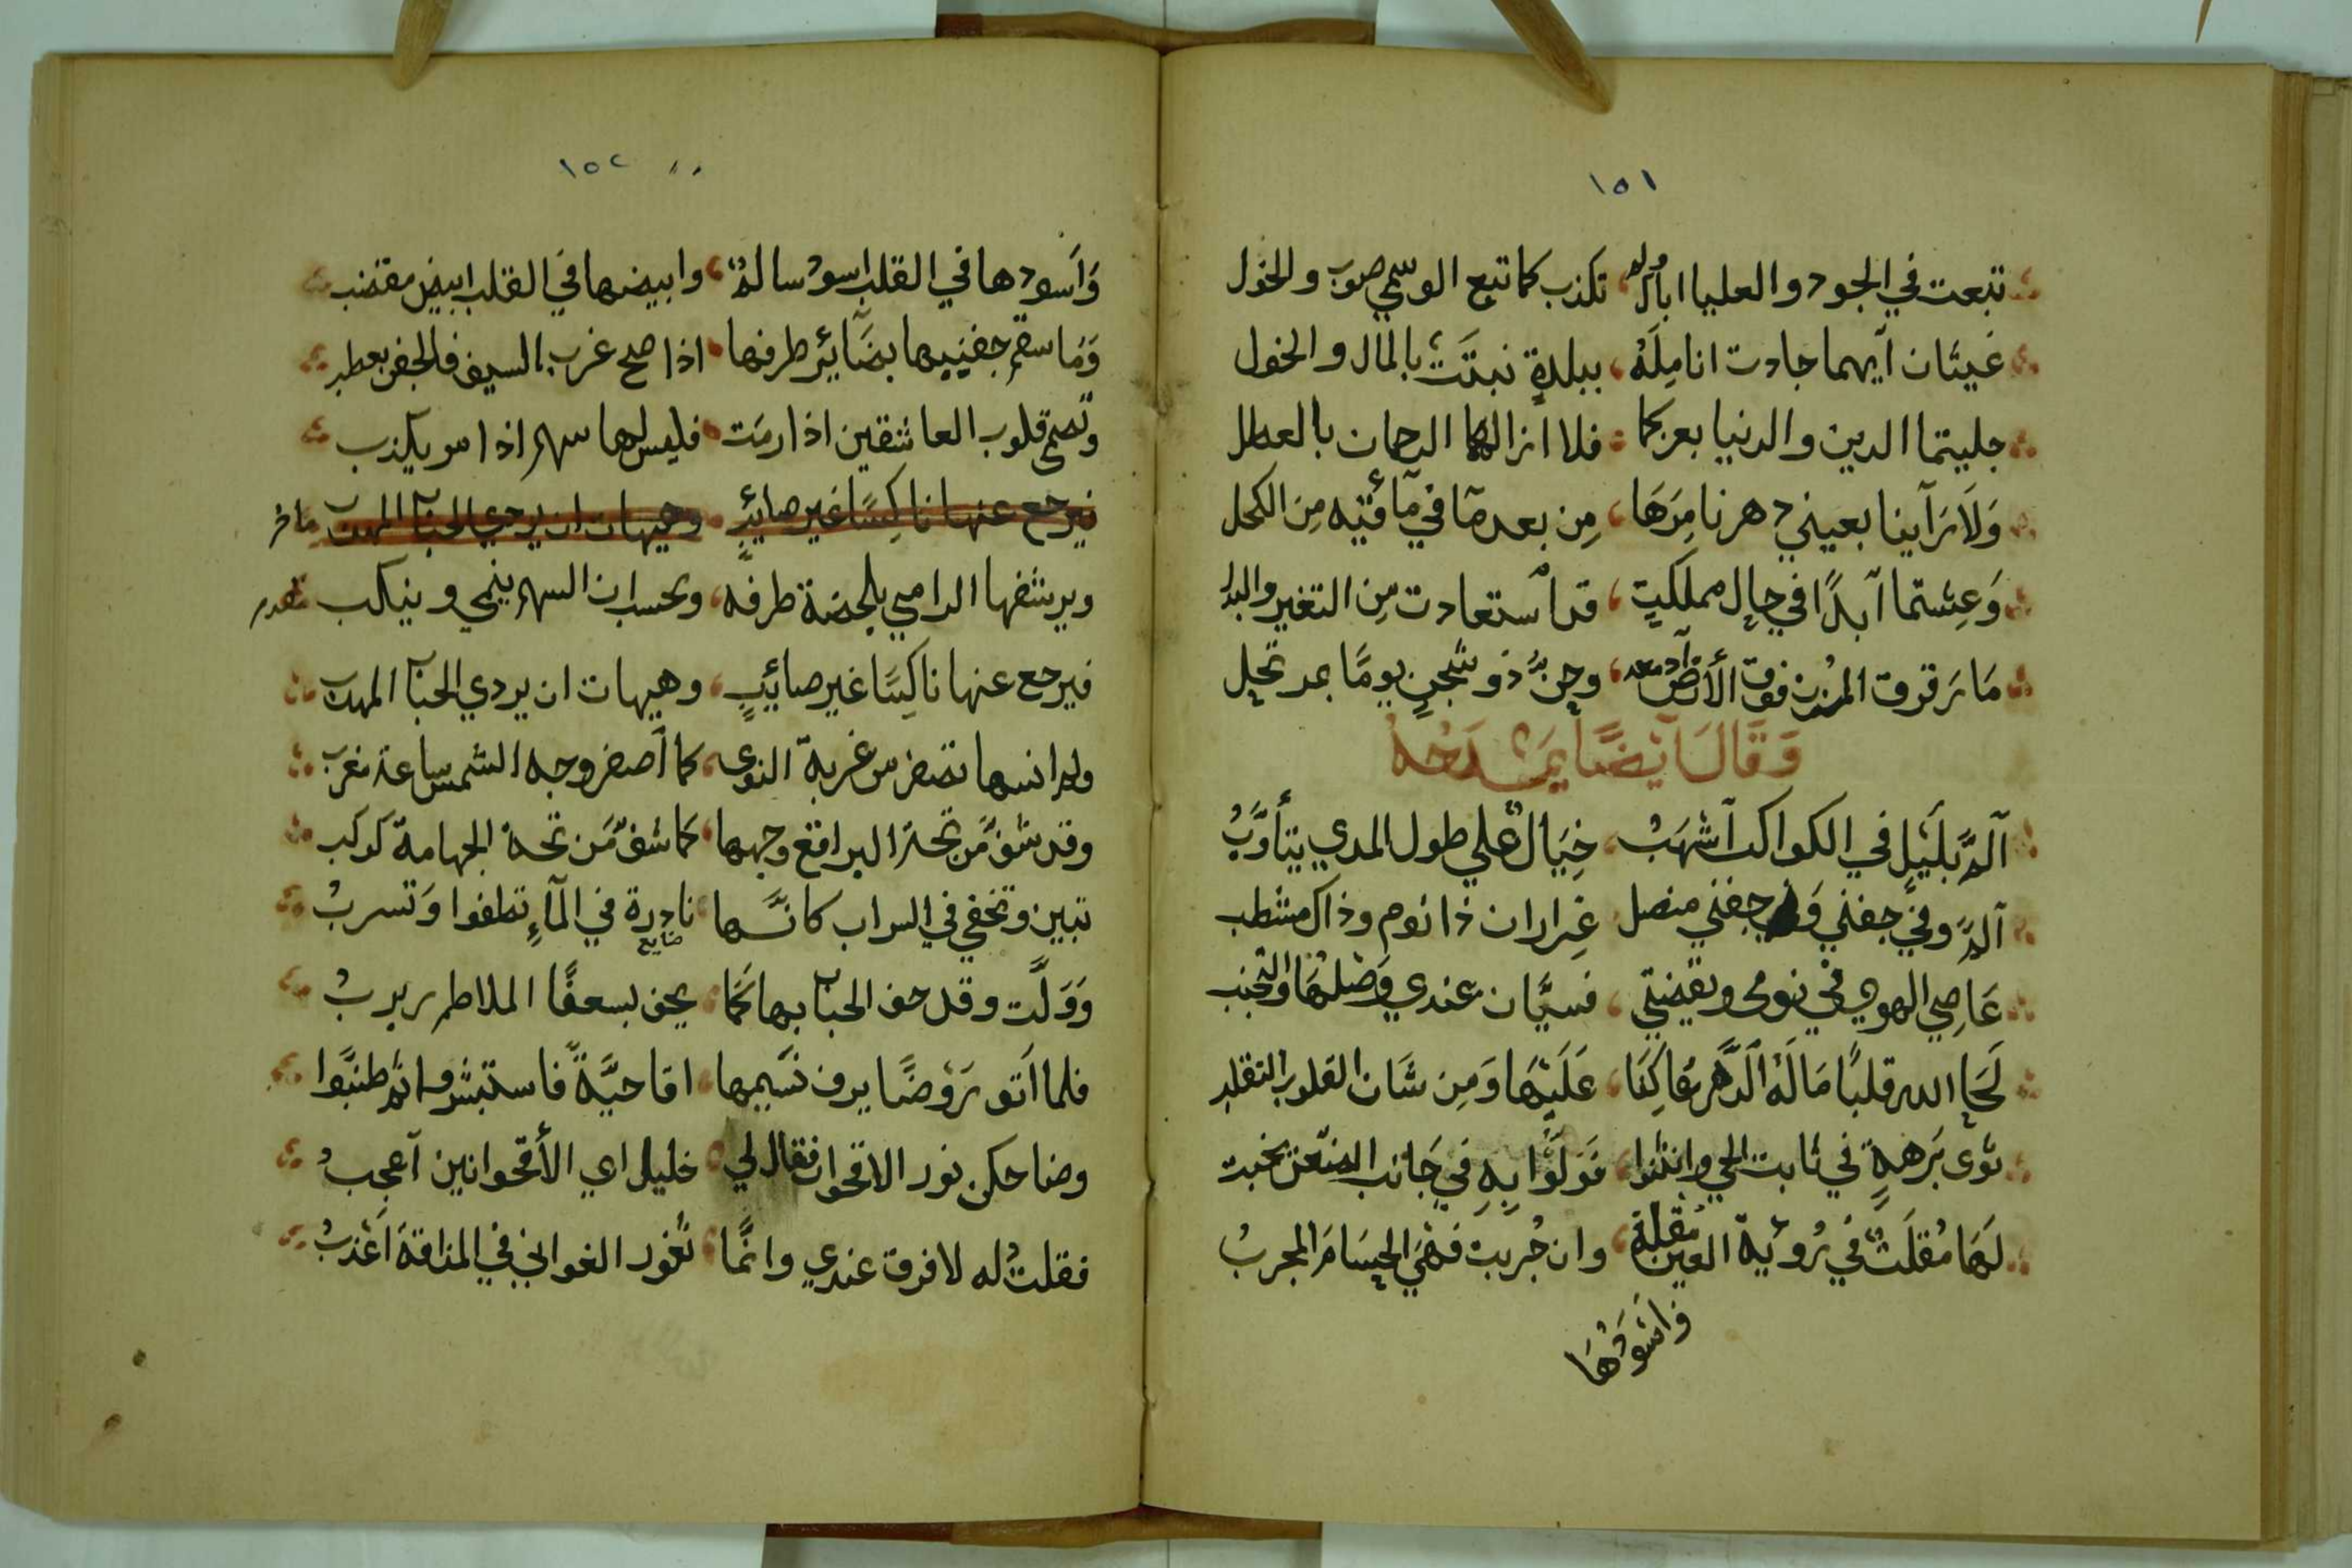 ١٥١
تبعت في الجود والعليا اباك ولم تكذب كما تبع الوسمي صوب والخول
غيثان ايهما جادت انامِلَهُ ببلدةٍ نبتَتْ بالمال والخول
جليتما الدين والدنيا بعربكما فلا ازالكما الرحمان بالعطل
وَلَا رَآينا بعيني دهرنا مِرَهَا مِن بعد مَا في مآقتيه مِنَ الكحل
وَعِشتما آبدًا في حِالِ مملكيةٍ قد آستعادت مِن التغير والبدل
مَا رَقرق المُزن فوق الأرض ادمعه وحِنَّ ذو شجنٍ يومًا بمرتحل
وَقَالَ آيْضًا يَمْدَحُهُ
آلمَّ بلَيْلٍ في الكواكب آشْهَبُ خِيَالٌ علي طول المدي يتأوَّبُ
آلمَّ وفي جفني وَفي جفني منصل غِراران ذا نوم وذاك مشطب
عَاصِي الهوي في نومي ويقضتي فسيَّان عندي وَصْلهَا والتجنب
لَحَا الله قلبًا مَا لَهُ الَدَّهر عَاكِفَا عَلَيْهَا وَمِن شَان القلوب التقلب
ثوى بَرهةٍ في ثابت الحي وانثنوا فوَلَّوا بِهِ في جَانب الضعن يخبت
لَهَا مُقلَتٌ في رُوئية العين مُقلة وان جُربت فَهْيَ الحِسَامَ المجربُ
وَاسَودُهَا
١٥٢
وَاَسودها في القلب اسود سالمٌ وابيضها في القلب ابيض مقتضب
وَمَا سقم جفنيها بضَآئِرِ طرفها اذا صح غرب السيف فالجفن يعطب
وتصمي قلوب العاشقين اذا رمَت فليس لها سهم اذا سو يكذب
فيرجع عنها ناكِسًا غير صائبٍ وهيهات ان يردي الحباب المهدب ماخر
ويرشفها الرامي بلحضة طرفه ويحسب ان السهم ينمي وينكب مقدم
فيرجع عنها ناكِسًا غير صائبٍ وهيهات ان يردي الحباب المهدب
ولم انسها تصفر من غربة النوى كما اصفر وجه الشمس ساعة مغرب
وقد شفَّ مَن تحت البراقع وجهها كما شفَّ مَن تحت الجهامة كوكب
تبين وتخفي في السراب كانَّها نادرة في المآءِ تطفوا وَتسربُ
ضايع
وَوَلَّت وقد حف الحباب بها كَمَا يحف بسعفًا الملاطم ربربُ
فلما اَتو رَوْضًا يرف نسَيمها اقاحيَّةً فاستبشروا ثم طنبَّوا
وضاحكن نور الاقحوان فقال لي خليلي اي الأقحوانين آعجبُ
فقلتُ له لا فرق عندي وانمَّا ثغور الغواني في المذاقة اَعْذبُ